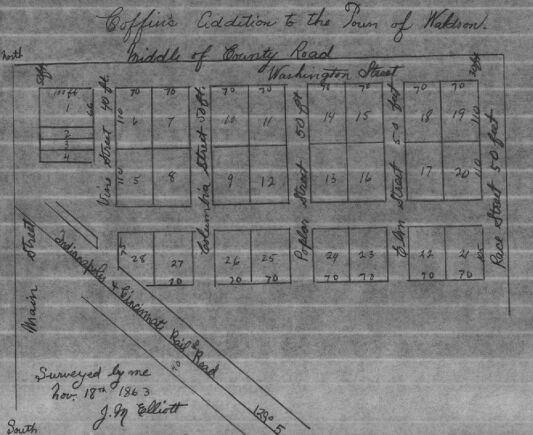 Coffin's Addition to the Town of Waldson.
North
Middle of County Road
Washington Street
100 ft
70 70 70 70 70 70 70 70
1 66
Vine Street 40 ft
110 6 7
Columbia Street 50 ft.
10 11
Poplar Street 50 ft
14 15
Elm Street 50 feet
18 19 110
Race Street 50 feet
2
3
4
110 5 8
9 12
13 16
17 20 110
Main Street
75 28 27
26 25
24 23
22 21
70
70 70
70 70
70 70
Indianapolis & Cincinnati Rail Road
Surveyed by me
Nov. 18th 1863
J. M Elliott
South